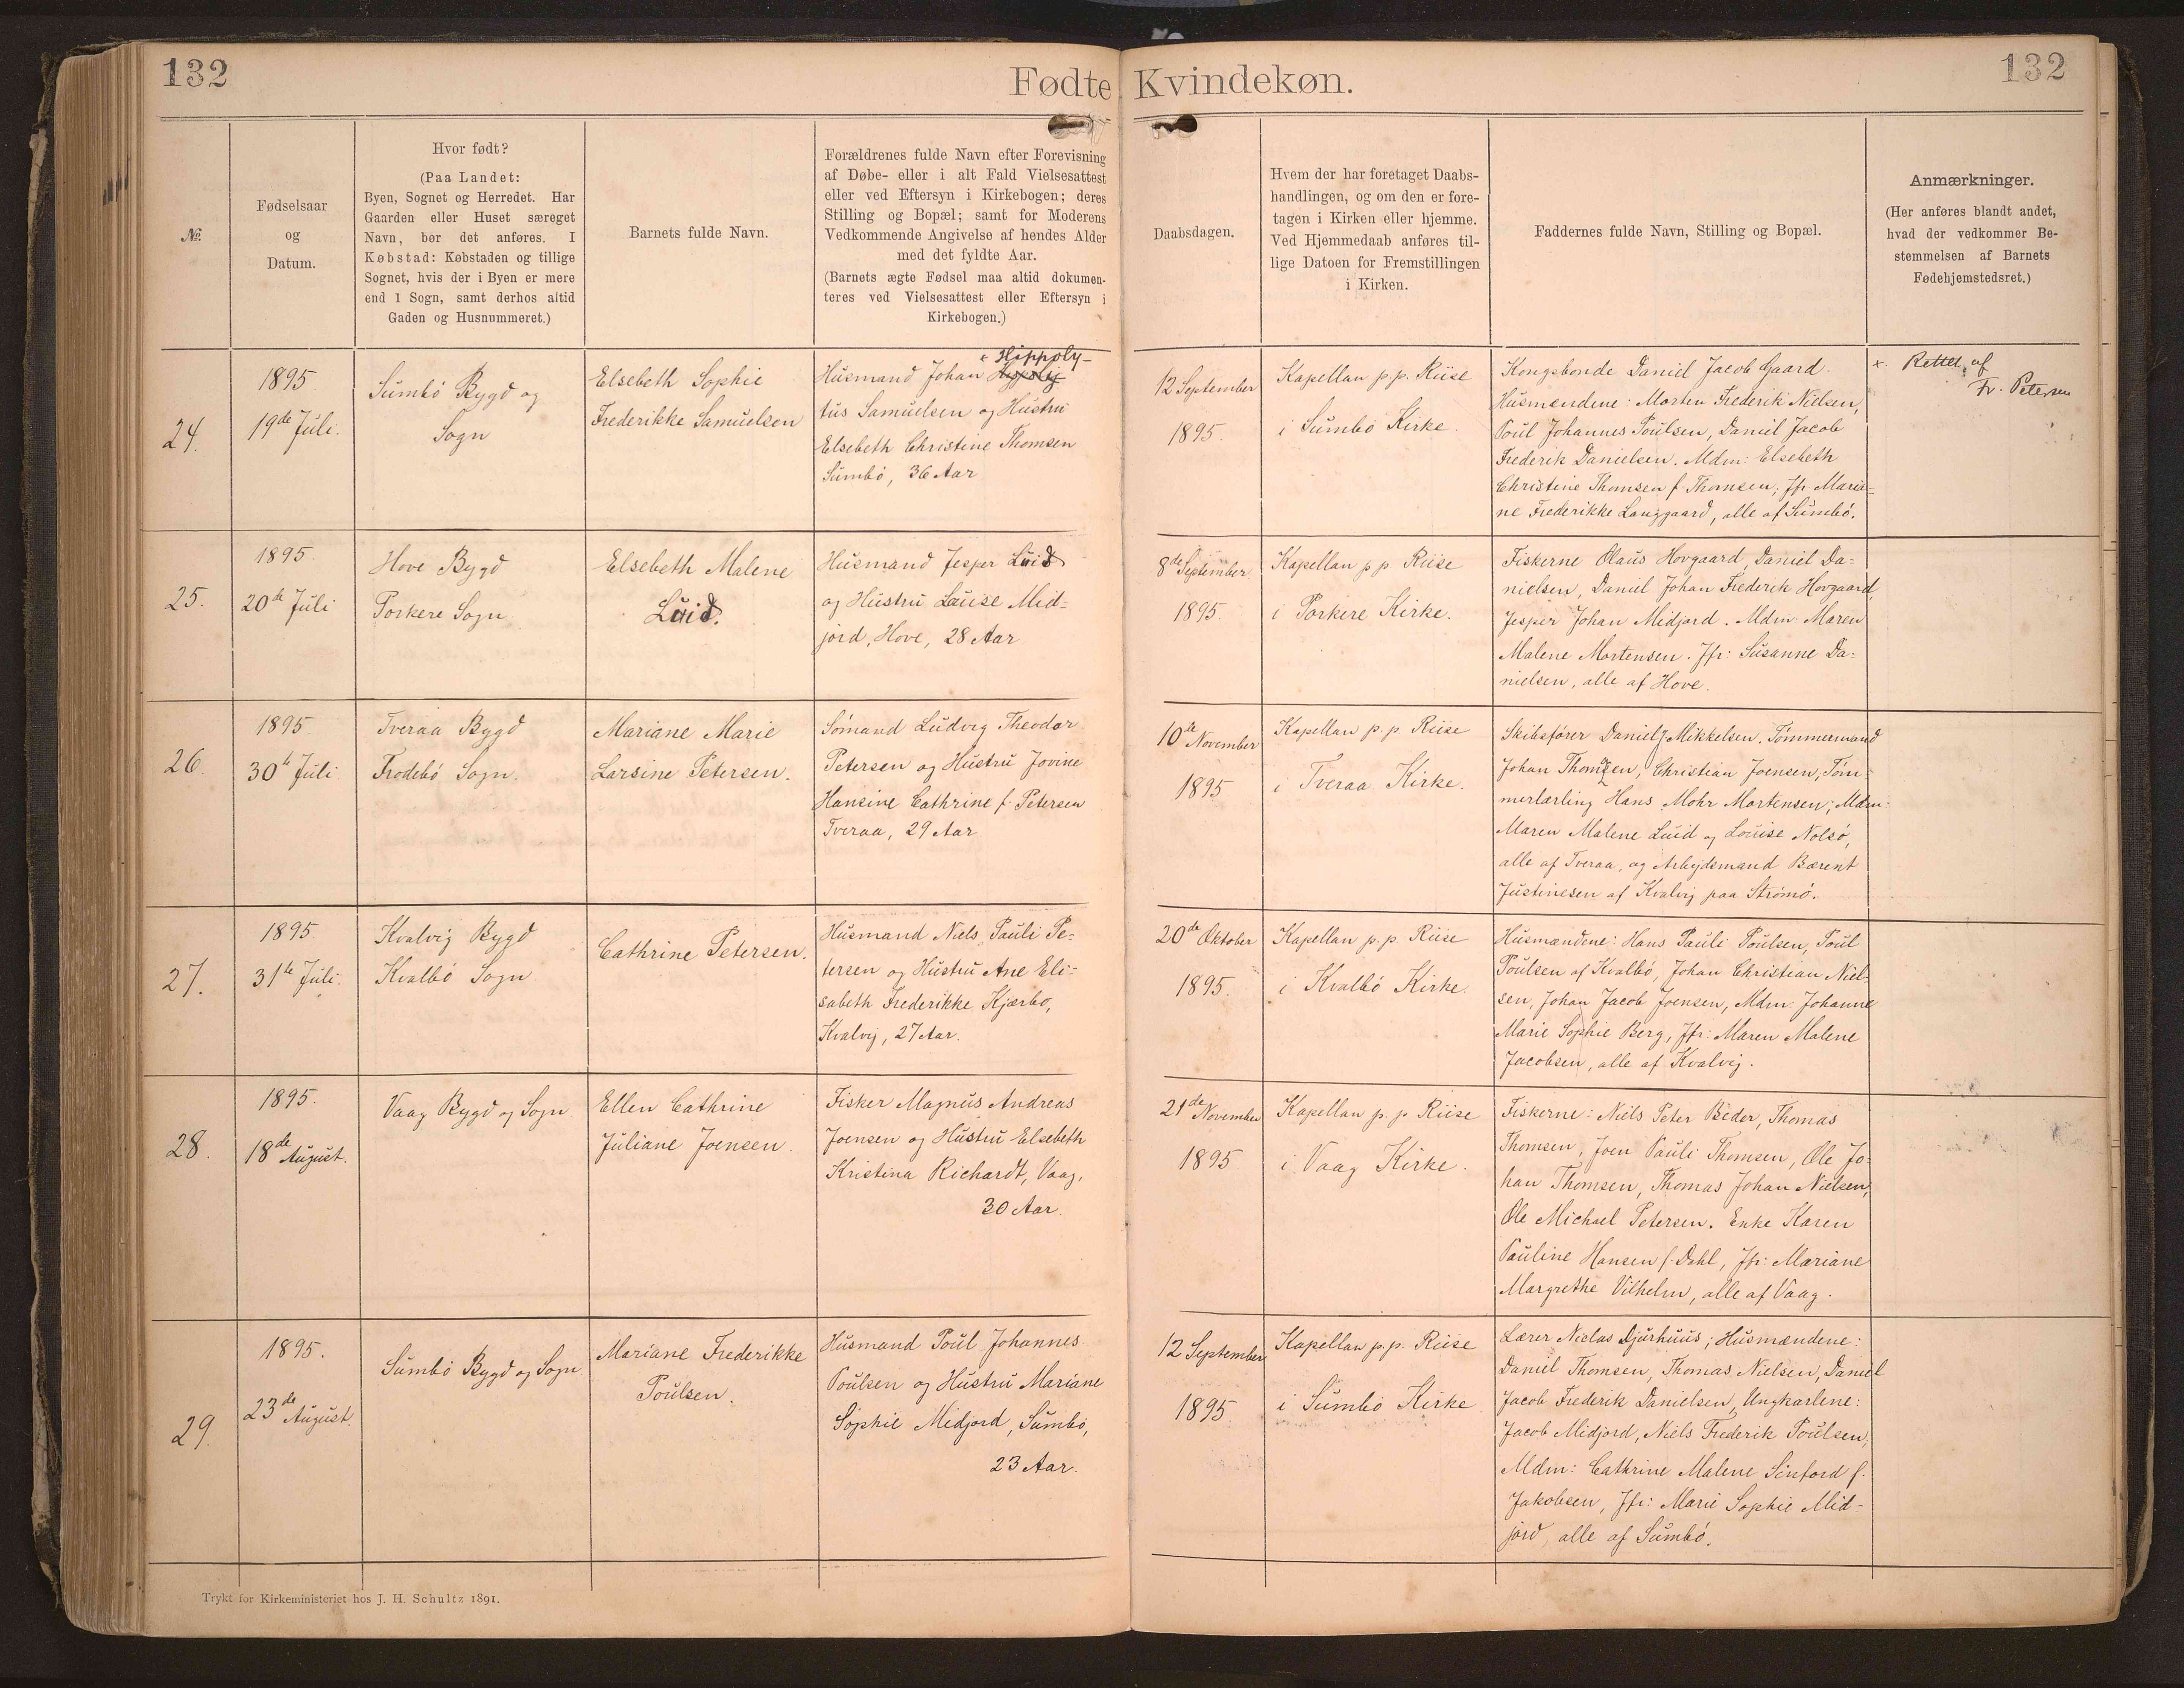 132
Fødte Kvindekøn.
132
№
Fødselsaar
og
Datum.
Hvor født?
(Paa Landet:
Byen, Sognet og Herredet. Har
Gaarden eller Huset særeget
Navn, bør det anføres. I
Købstad: Købstaden og tillige
Sognet, hvis der i Byen er mere
end 1 Sogn, samt derhos altid
Gaden og Husnummeret.)
Barnets fulde Navn.
Forældrenes fulde Navn efter Forevisning
af Døbe- eller i alt Fald Vielsesattest
eller ved Eftersyn i Kirkebogen; deres
Stilling og Bopæl; samt for Moderens
Vedkommende Angivelse af hendes Alder
med det fyldte Aar.
(Barnets ægte Fødsel maa altid dokumen-
teres ved Vielsesattest eller Eftersyn i
Kirkebogen.)
Daabsdagen.
Hvem der har foretaget Daabs-
handlingen, og om den er fore-
tagen i Kirken eller hjemme.
Ved Hjemmedaab anføres til-
lige Datoen for Fremstillingen
i Kirken.
Faddernes fulde Navn, Stilling og Bopæl.
Anmærkninger.
(Her anføres blandt andet,
hvad der vedkommer Be-
stemmelsen af Barnets
Fødehjemstedsret.)
24.
1895
19de Juli.
Sumbö Bygd og
Sogn
Elsebeth Sophie
Frederikke Samuelsen
× Hippoly-
Husmand Johan
tus Samuelsen og Hustru
Elsebeth Christine Thomsen
Sumbö, 36 Aar
12 September
1895.
Kapellan p.p. Riise
i Sumbö Kirke.
Kongsbonde Daniel Jacob Gaard.
Husmændene: Morten Frederik Nielsen,
Poul Johannes Poulsen, Daniel Jacob
Frederik Danielsen. Mdm: Elsebeth
Christine Thomsen f. Thomsen, Jfr. Maria-
ne Frederikke Langgaard, alle af Sumbö.
×. Rettet af
Fr. Petersen
25.
1895.
20de Juli
Hove Bygd
Porkere Sogn
Elsebeth Malene
Luid.
Husmand Jesper Luid
og Hustru Louise Mid-
jord, Hove, 28 Aar
8de September
1895.
Kapellan p p Riise
i Porkere Kirke.
Fiskerne Olaus Hovgaard, Daniel Da-
nielsen, Daniel Johan Frederik Hovgaard,
Jesper Johan Midjord. Mdm: Maren
Malene Mortensen. Jfr: Susanne Da-
nielsen, alle af Hove.
26.
1895
30te Juli
Tveraa Bygd
Frodebö Sogn.
Mariane Marie
Larsine Petersen.
Sömand Ludvig Theodor
Petersen og Hustru Jovine
Hansine Cathrine f. Petersen
Tveraa, 29 Aar
10de November
1895
Kapellan p.p. Riise
i Tveraa Kirke.
Skibsfører Daniel J Mikkelsen. Tömmermand
Johan Thomsen, Christian Joensen, Töm-
merlærling Hans Mohr Mortensen; Mdm:
Maren Malene Luid og Louise Nolsö,
alle af Tveraa, og Arbejdsmand Bærent
Justinesen af Kvalvig paa Strömö.
27.
1895
31te Juli.
Kvalvig Bygd
Kvalbö Sogn
Cathrine Petersen.
Husmand Niels Pauli Pe-
tersen og Hustru Ane Eli-
sabeth Frederikke Kjærbo,
Kvalvig, 27 Aar.
20de Oktober
1895.
Kapellan p.p. Riise
i Kvalbö Kirke.
Husmændene: Hans Pauli Poulsen, Poul
Poulsen af Kvalbö, Johan Christian Niel-
sen, Johan Jacob Joensen, Mdm Johanne
Marie Sophie Berg, Jfr: Maren Malene
Jacobsen, alle af Kvalvig.
28.
1895.
18de August.
Vaag Bygd og Sogn
Ellen Cathrine
Juliane Joensen.
Fisker Magnus Andreas
Joensen og Hustru Elsebeth
Kristina Richardt, Vaag,
30 Aar.
21de November
1895
Kapellan p. p Riise
i Vaag Kirke.
Fiskerne: Niels Peter Beder, Thomas
Thomsen, Joen Pauli Thomsen, Ole Jo-
han Thomsen, Thomas Johan Nielsen,
Ole Michael Petersen. Enke Karen
Pauline Hansen f. Dahl, Jfr: Mariane
Margrethe Vilhelm, alle af Vaag.
29.
1895.
23de August.
Sumbö Bygd og Sogn
Mariane Frederikke
Poulsen.
Husmand Poul Johannes
Poulsen og Hustru Mariane
Sophie Midjord, Sumbö,
23 Aar.
12 September
1895.
Kapellan p.p. Riise
i Sumbö Kirke
Lærer Niclas Djurhuus; Husmændene:
Daniel Thomsen, Thomas Nielsen, Daniel
Jacob Frederik Danielsen, Ungkarlene:
Jacob Midjord, Niels Frederik Poulsen,
Mdm: Cathrine Malene Sinford f.
Jakobsen, Jfr: Marie Sophie Mid-
jord, alle af Sumbö.
Trykt for Kirkeministeriet hos J. H. Schultz 1891.